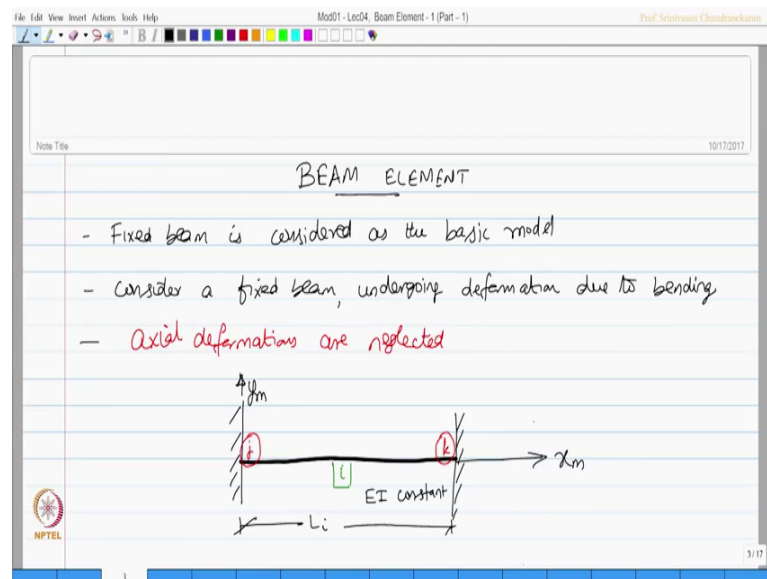 File Edit View Insert Actions Tools Help
Mod01 - Lec04, Beam Element - 1 (Part – 1)
Prof. Srinivasan Chandrasekaran
B I
Note Title
10/17/2017
BEAM ELEMENT
- Fixed beam is considered as the basic model
- consider a fixed beam, undergoing deformation due to bending
- axial deformations are neglected
ym
j
k
xm
i
EI constant
Li
NPTEL
3/17
1